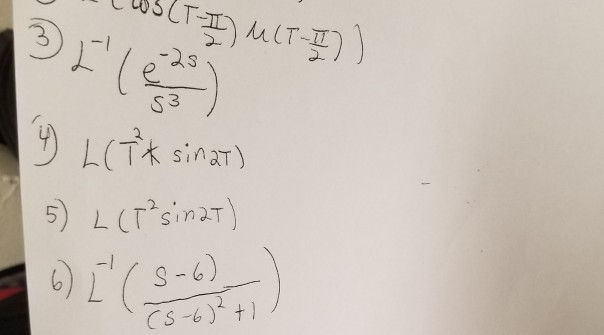 L(cos(T-π/2) u(T-π/2))
3) L⁻¹(e⁻²ˢ/s³)
4) L(T² * sin2T)
5) L(T²sin2T)
6) L⁻¹((s-6)/((s-6)²+1))